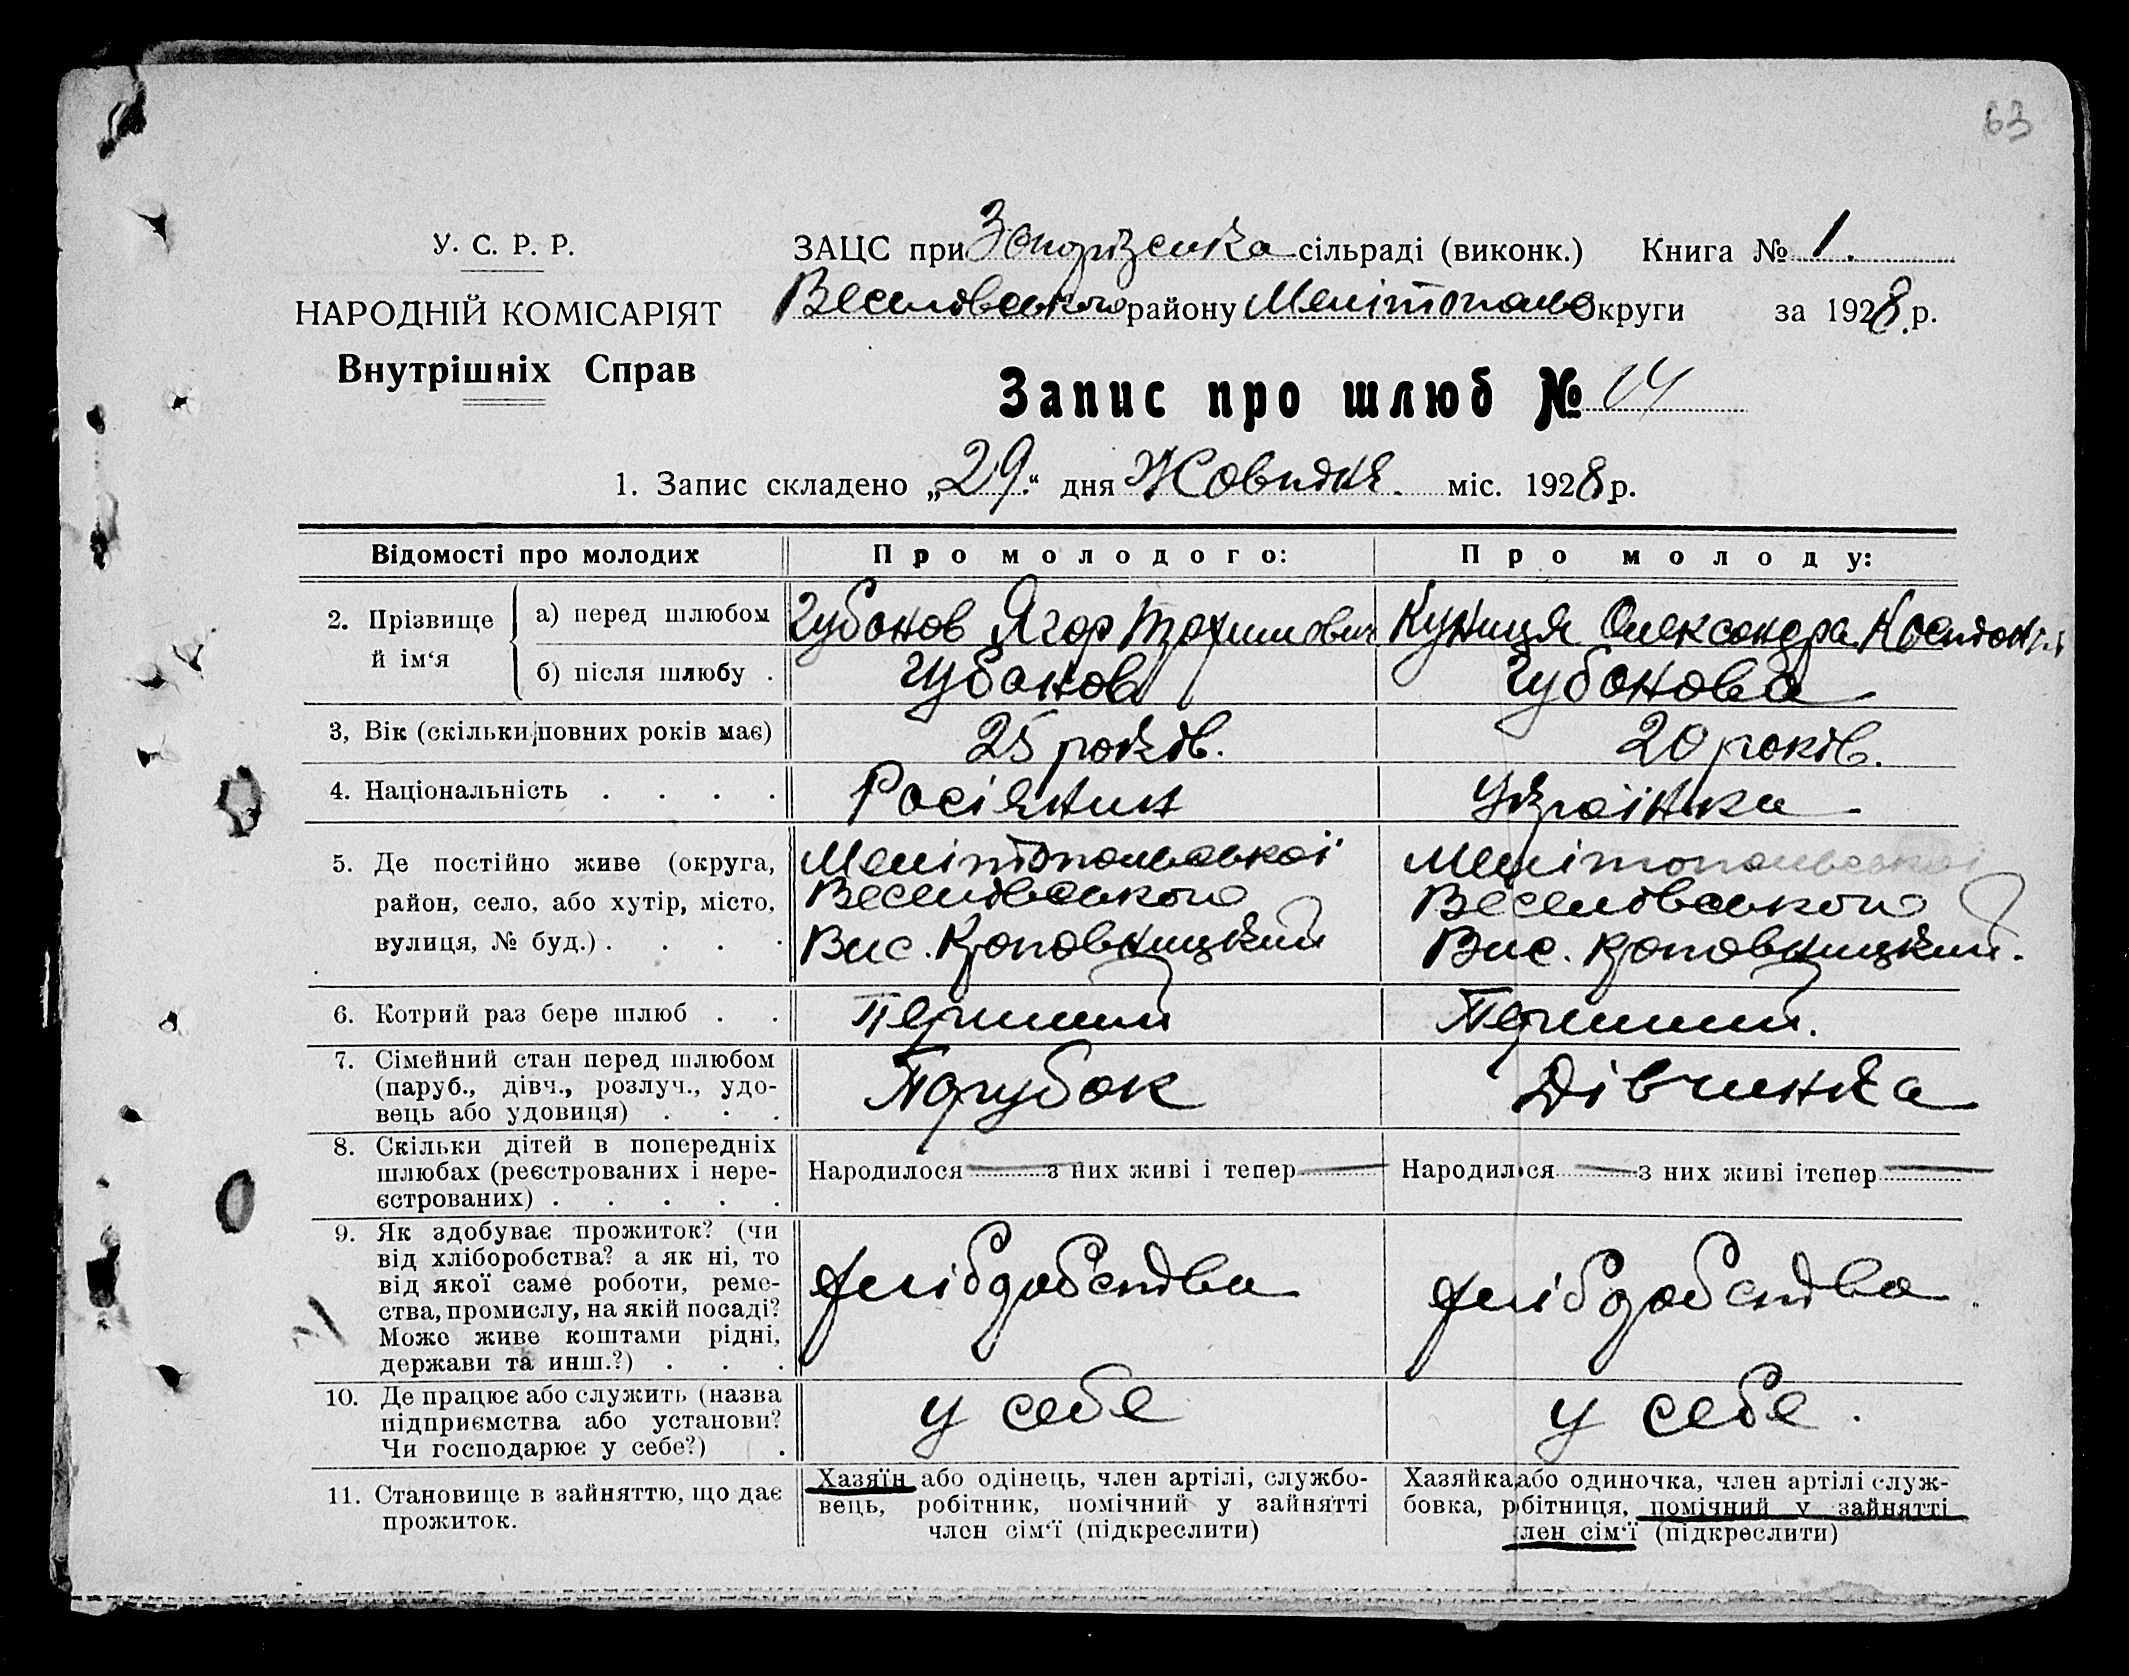 63
У. С. Р. Р.
НАРОДНІЙ КОМІСАРІЯТ
Внутрішніх Справ
ЗАЦС при Запорізська сільраді (виконк.) Книга № 1.
Веселовського району Мелітополь Округи за 1928 р.
Запис про шлюб № 14
1. Запис складено „29“ дня Жовтня. міс. 1928 р.
Відомості про молодих
Про молодого:
Про молоду:
2. Прізвище й ім‘я
а) перед шлюбом
Губанов Ягор
Куниця Олександра
б) після шлюбу .
Губанов
Губанова
3, Вік (скільки повних років має)
25 років.
20 років.
4. Національність . . . .
Росіянин
Українка
5. Де постійно живе (округа,
район, село, або хутір, місто,
вулиця, № буд.) . . . .
Мелітопольської
Веселівського
Вис. Кроповницький
Мелітопольської
Веселівського
Вис. Кроповницкий.
6. Котрий раз бере шлюб . .
Перший
Перший.
7. Сімейний стан перед шлюбом
(паруб., дівч., розлуч., удо-
вець або удовиця) . . .
Парубок
Дівчинка
8. Скільки дітей в попередніх
шлюбах (реєстрованих і нере-
єстрованих) . . . . .
Народилося — з них живі і тепер —
Народилося — з них живі ітепер —
9. Як здобуває прожиток? (чи
від хліборобства? а як ні, то
від якої саме роботи, реме-
ства, промислу, на якій посаді?
Може живе коштами рідні,
держави та инш.?) . . .
хлібдобства
хлібдобства.
10. Де працює або служить (назва
підприємства або установи?
Чи господарює у себе?) .
у себе
у себе.
11. Становище в зайняттю, що дає
прожиток.
Хазяїн або одінець, член артілі, службо-
вець, робітник, помічний у зайнятті
член сім‘ї (підкреслити)
Хазяйка або одиночка, член артілі служ-
бовка, робітниця, помічний у зайнятті
член сім‘ї (підкреслити)